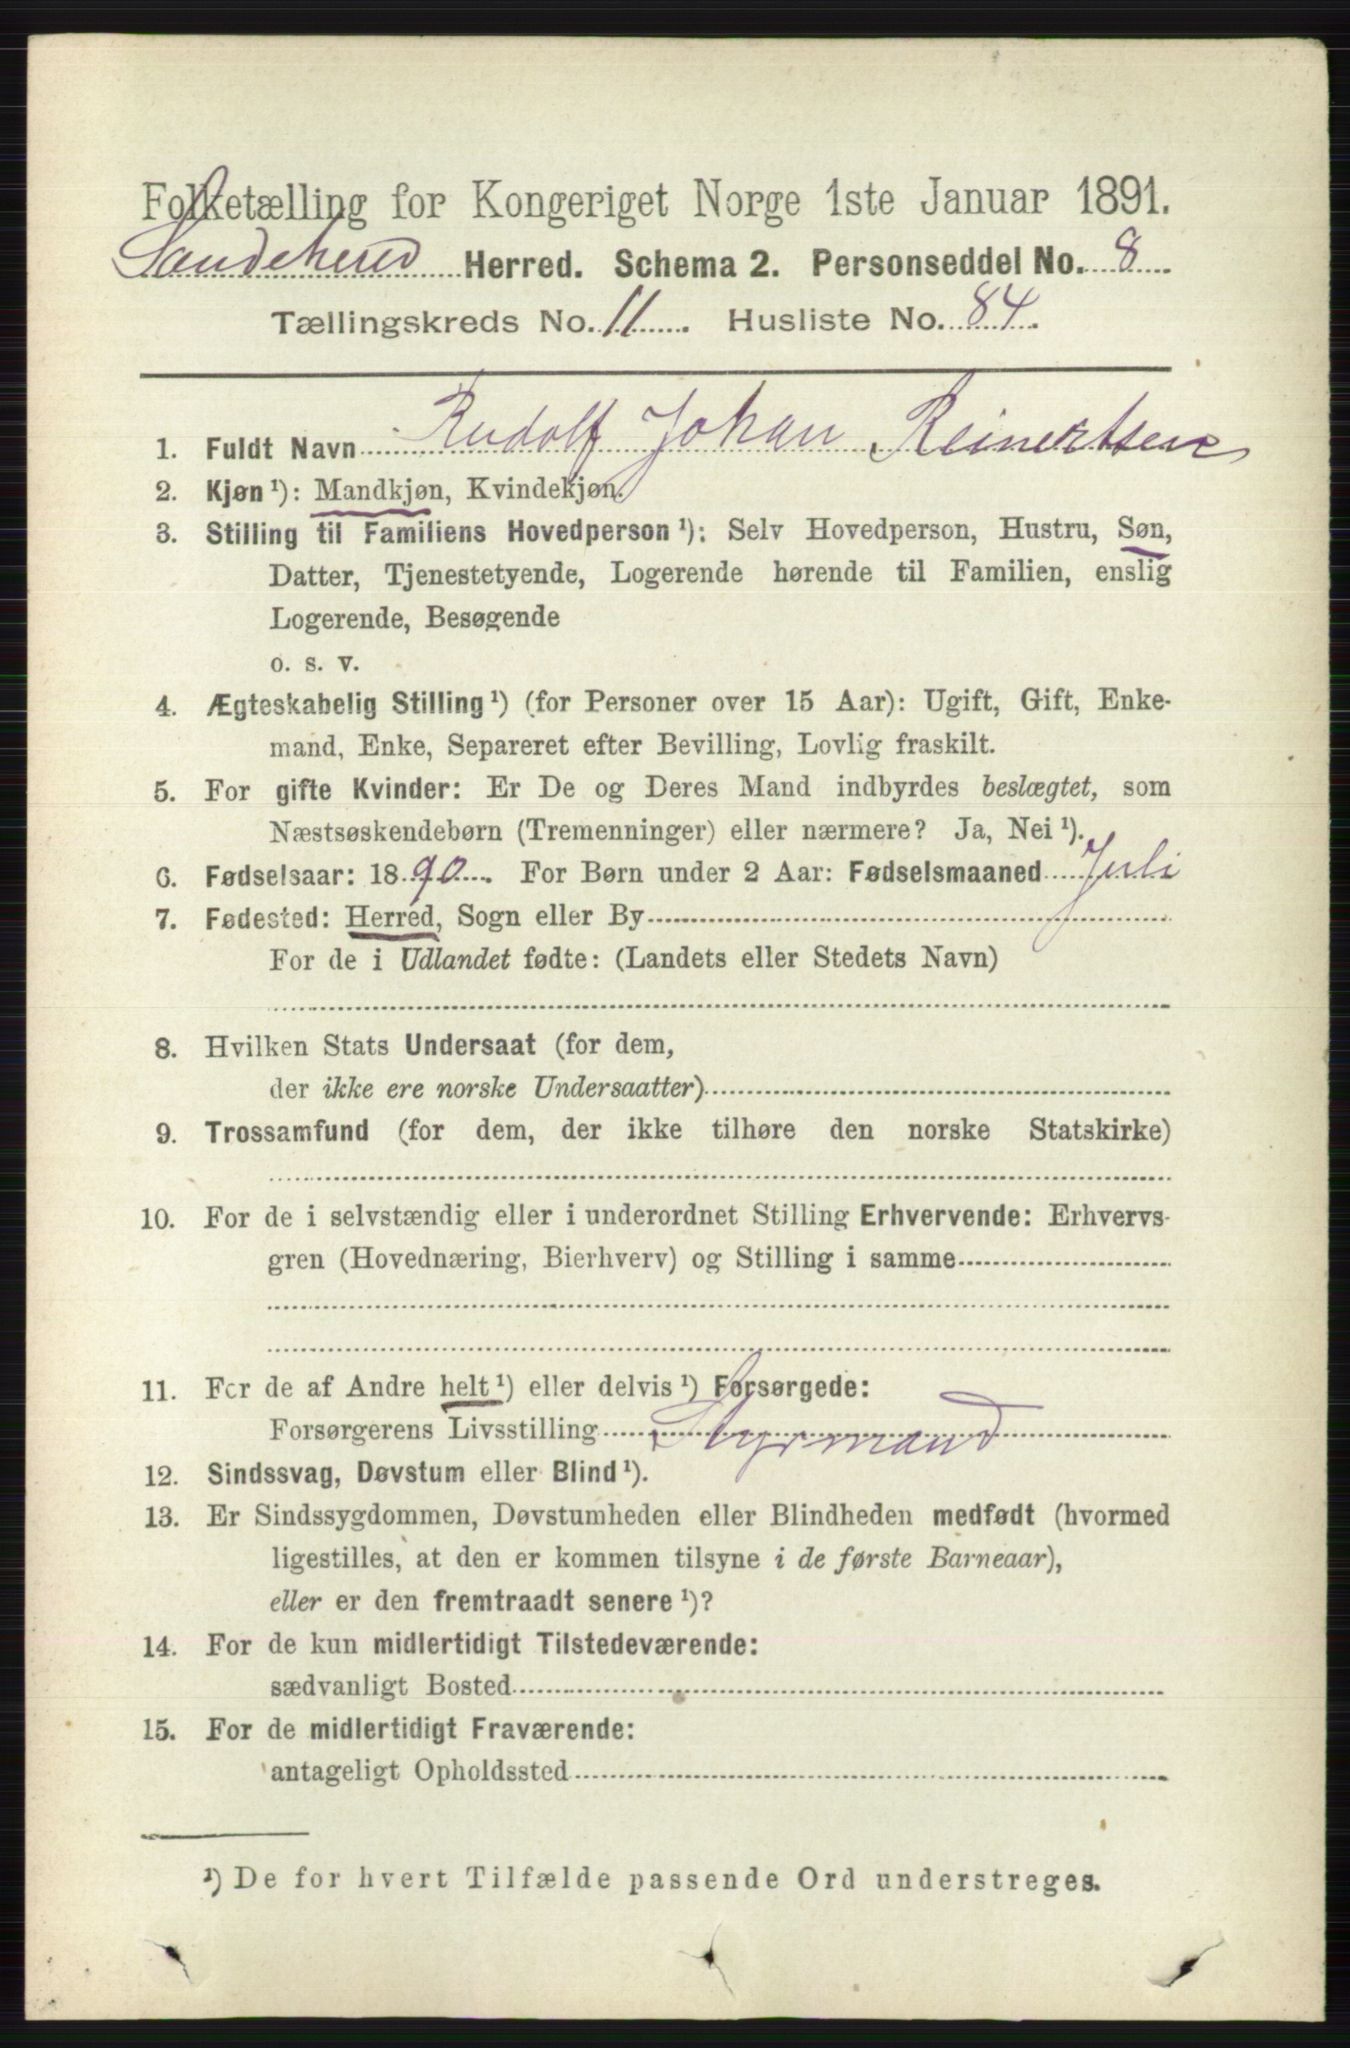 Folketælling for Kongeriget Norge 1ste Januar 1891.
Sandeherred Herred. Schema 2. Personseddel No. 8
Tællingskreds No. 11. Husliste No. 84.
1. Fuldt Navn Rudolf Johan Reinertsen
2. Kjøn ¹): Mandkjøn, Kvindekjøn.
3. Stilling til Familiens Hovedperson ¹): Selv Hovedperson, Hustru, Søn,
Datter, Tjenestetyende, Logerende hørende til Familien, enslig
Logerende, Besøgende
o. s. v.
4. Ægteskabelig Stilling ¹) (for Personer over 15 Aar): Ugift, Gift, Enke-
mand, Enke, Separeret efter Bevilling, Lovlig fraskilt.
5. For gifte Kvinder: Er De og Deres Mand indbyrdes beslægtet, som
Næstsøskendebørn (Tremenninger) eller nærmere? Ja, Nei ¹).
6. Fødselsaar: 1890. For Børn under 2 Aar: Fødselsmaaned Juli
7. Fødested: Herred, Sogn eller By
For de i Udlandet fødte: (Landets eller Stedets Navn)
8. Hvilken Stats Undersaat (for dem,
der ikke ere norske Undersaatter)
9. Trossamfund (for dem, der ikke tilhøre den norske Statskirke)
10. For de i selvstændig eller i underordnet Stilling Erhvervende: Erhvervs-
gren (Hovednæring, Bierhverv) og Stilling i samme
11. For de af Andre helt ¹) eller delvis ¹) Forsørgede:
Forsørgerens Livsstilling Styrmand
12. Sindssvag, Døvstum eller Blind ¹).
13. Er Sindssygdommen, Døvstumheden eller Blindheden medfødt (hvormed
ligestilles, at den er kommen tilsyne i de første Barneaar),
eller er den fremtraadt senere ¹)?
14. For de kun midlertidigt Tilstedeværende:
sædvanligt Bosted
15. For de midlertidigt Fraværende:
antageligt Opholdssted
¹) De for hvert Tilfælde passende Ord understreges.